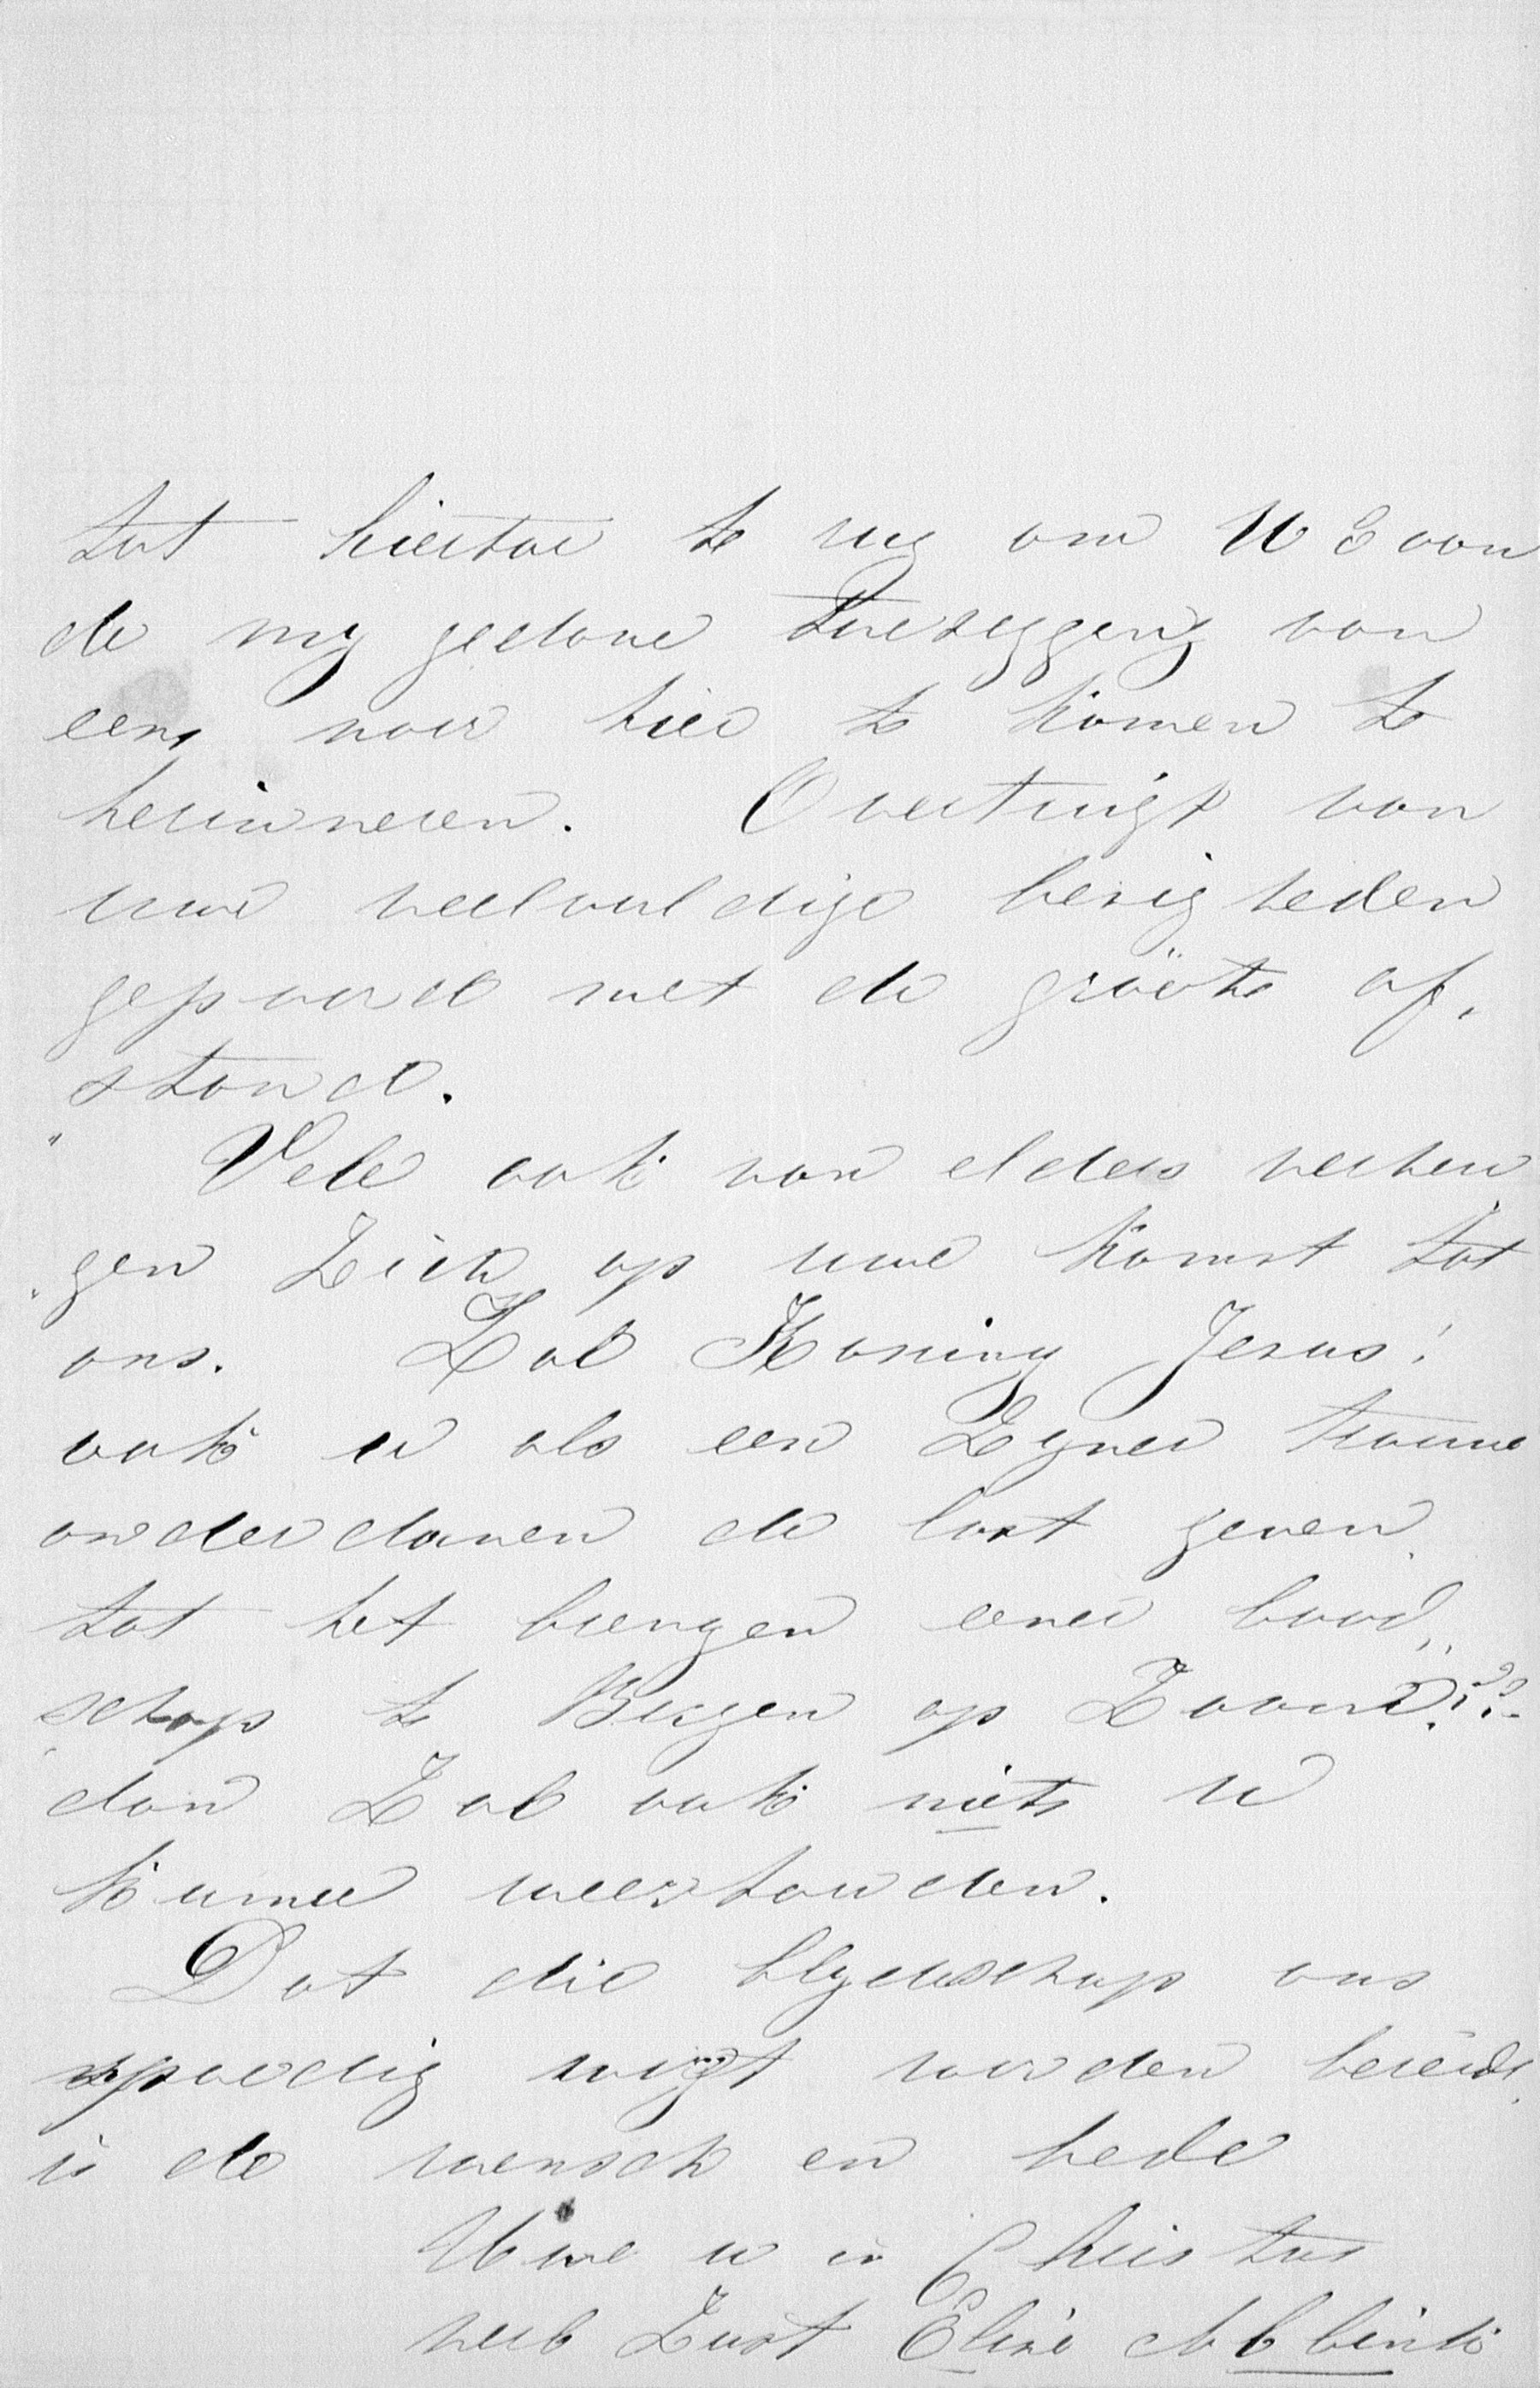 tot hiertoe te rug om UE aan
de my gedane toezegging van
eens naar hier te komen te
herinneren. Overtuigt van
uwe veelvuldige bezigheden
gepaard met de groote af„
stand.
Vele ook van elders verheu„
„gen Zich op uwe komst tot
ons. Zal Koning Jesus!
ook u als een Zyner trouwe
onderdanen de last geven
tot het brengen eener bood„
schap te Bergen op Zoom???
dan Zal ook niets u
kunne weerhouden.
Dat die blydschap ons
spoedig mogt worden bereid
is de wensch en bede
Uwe u in Christus
verb Zust Eline Abbink